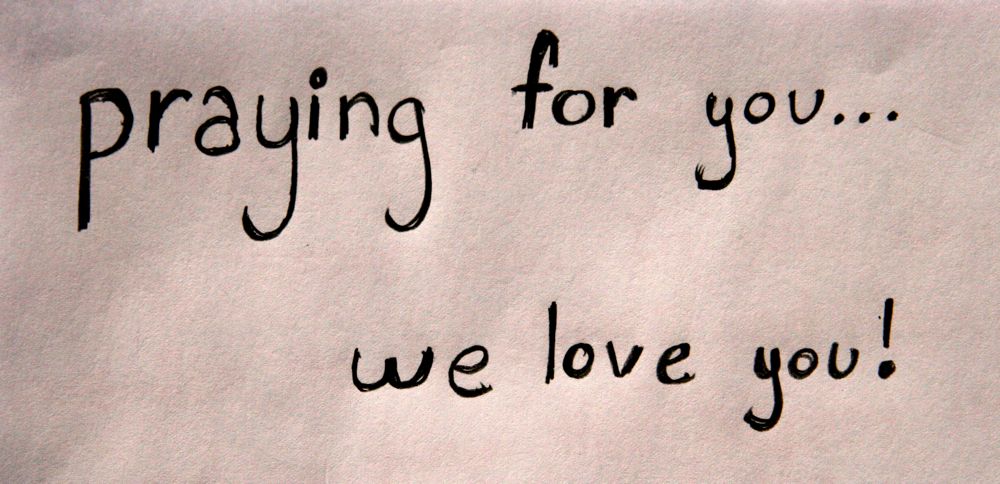 praying for you...
we love you!